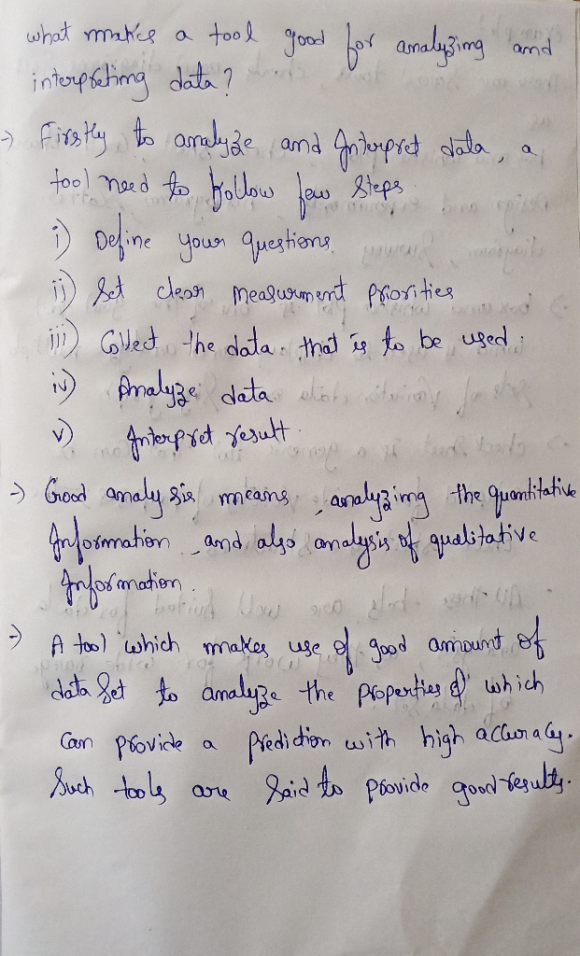 what makes a tool good for analyzing and
interpreting data?
→ Firstly to analyze and Interpret data, a
tool need to follow few steps
i) Define your questions.
ii) Set clear measurment priorities
iii) Collect the data that is to be used.
iv) Analyze data
v) Interpret result.
→ Good analysis means, analyzing the quantitative
Information and also analysis of qualitative
Information.
→ A tool which makes use of good amount of
data set to analyze the properties & which
can provide a prediction with high accuracy.
Such tools are said to provide good results.